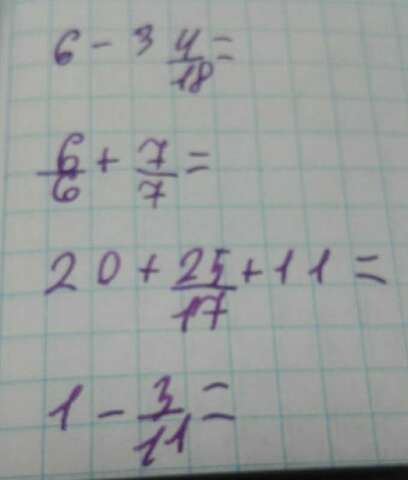 6 - 3 4/18 =
6/6 + 7/7 =
20 + 25/17 + 11 =
1 - 3/11 =